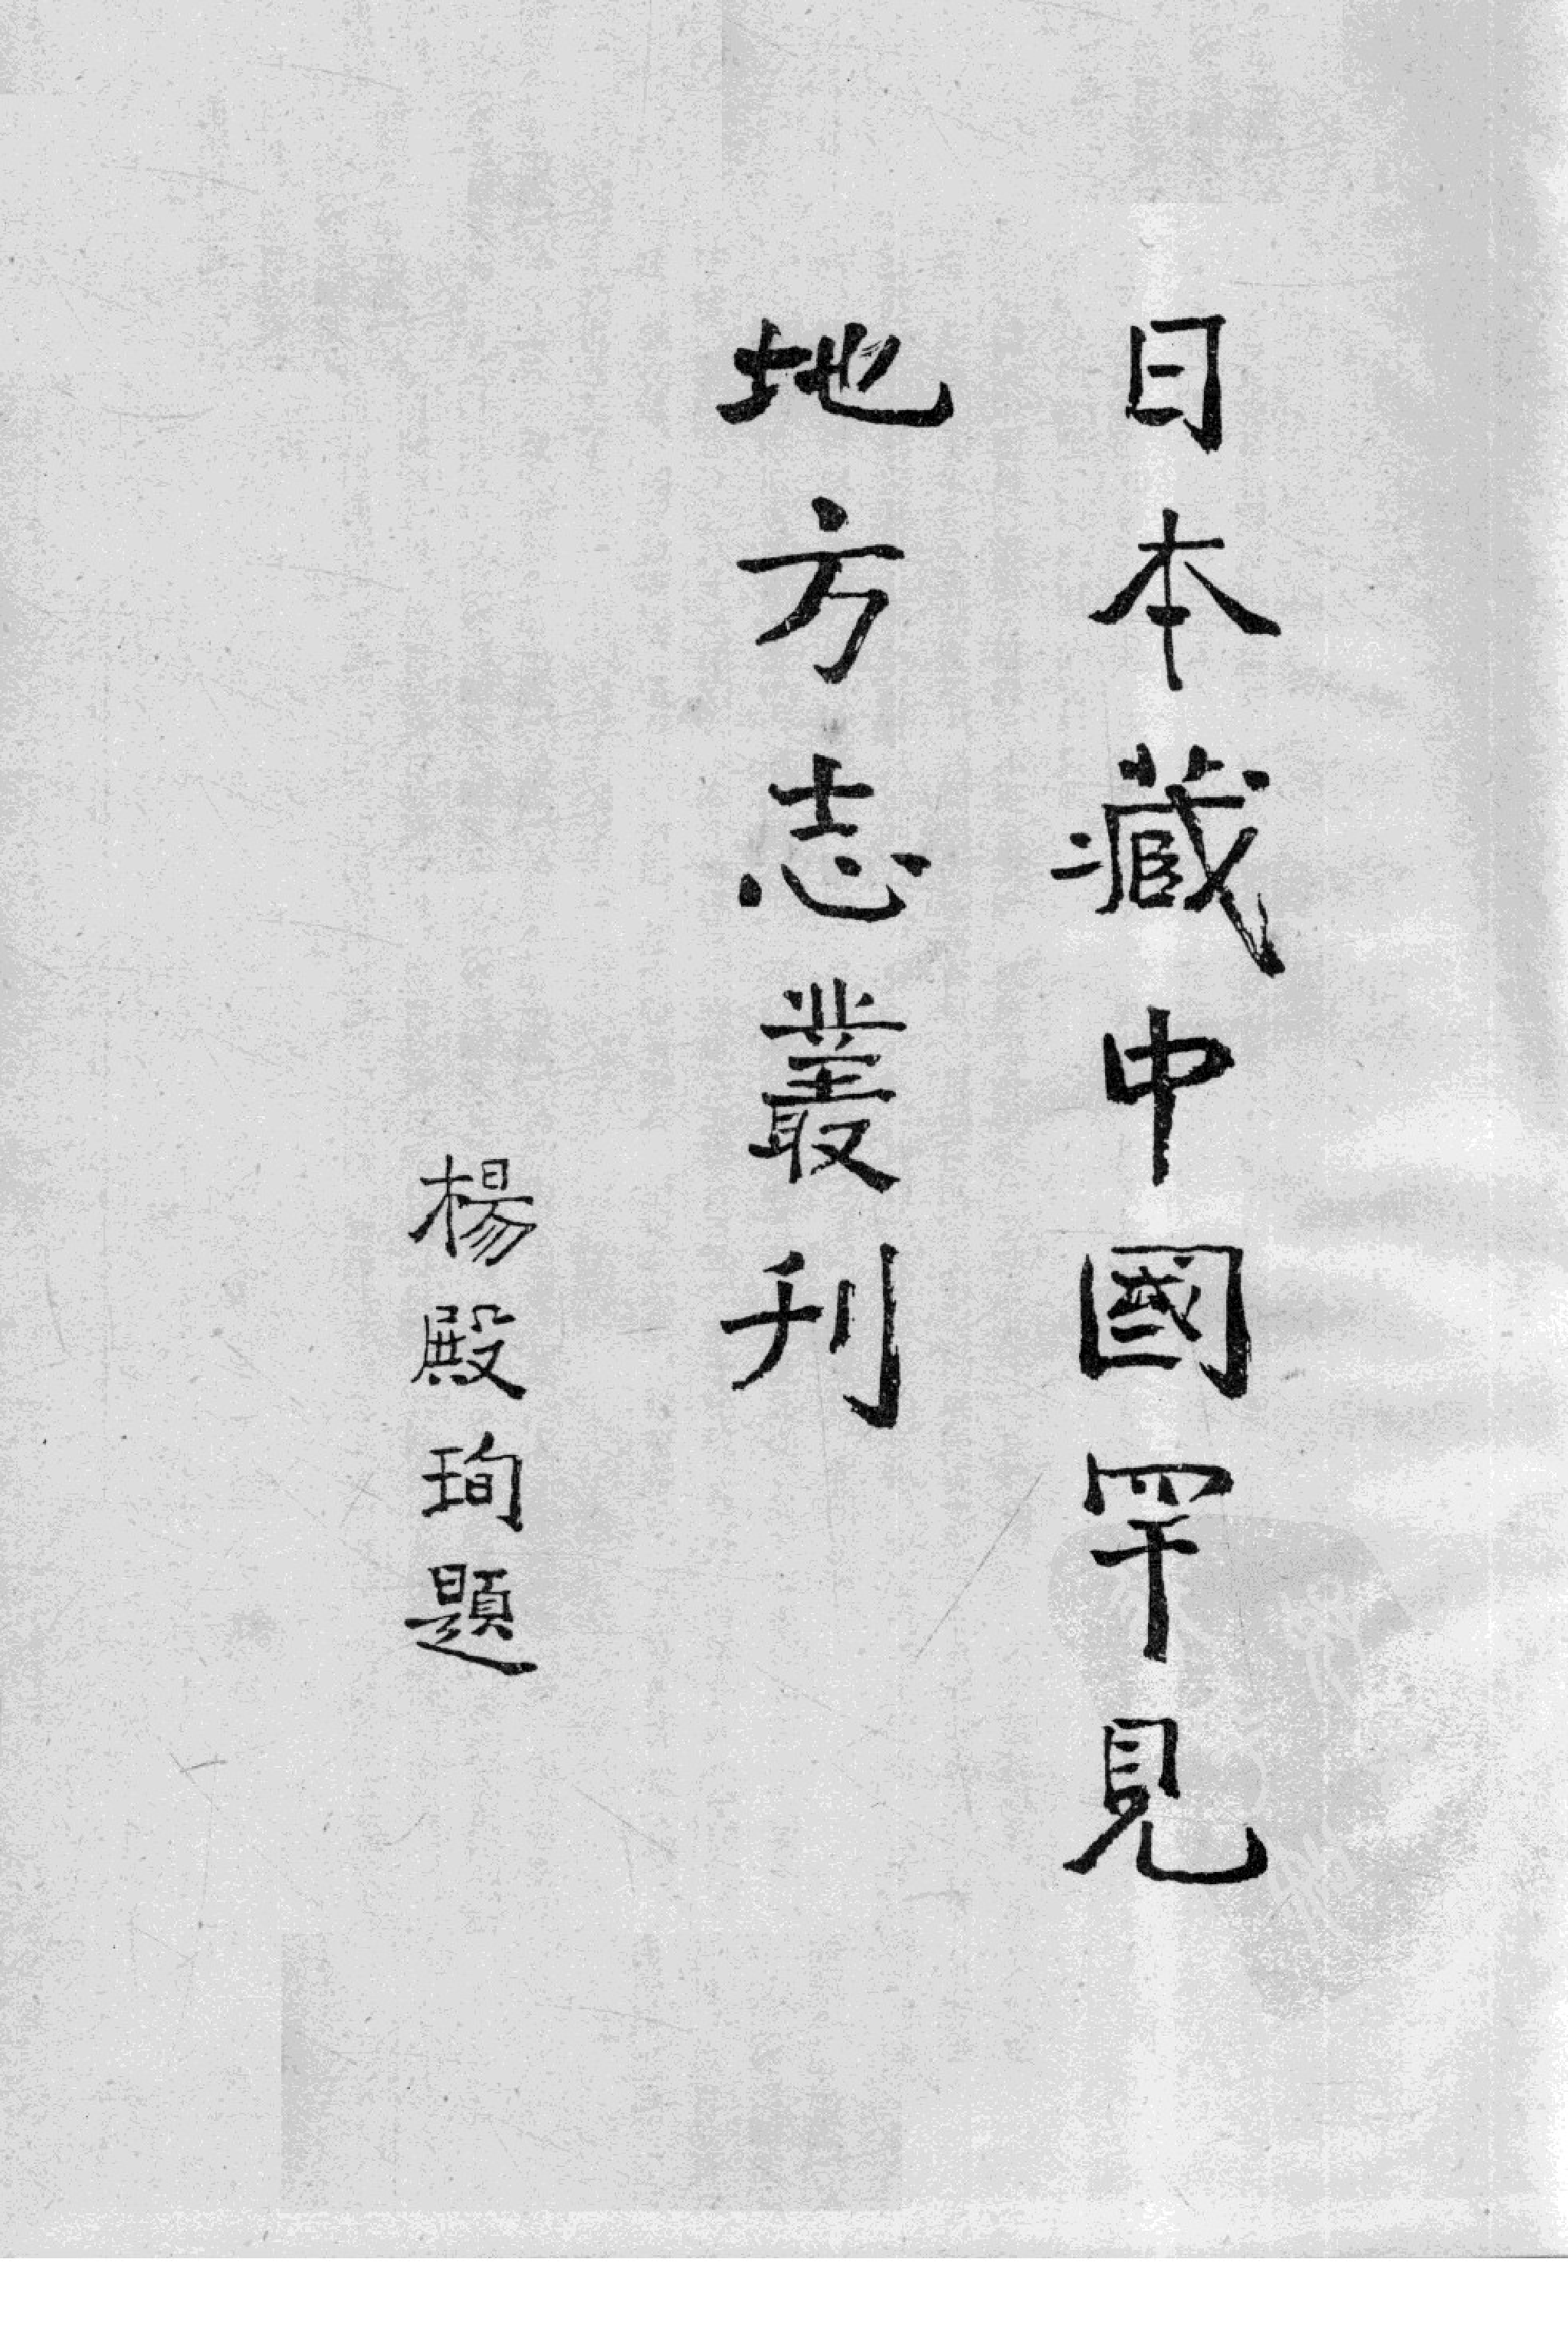 日本藏中國罕見
地方志叢刊
楊殿珣題